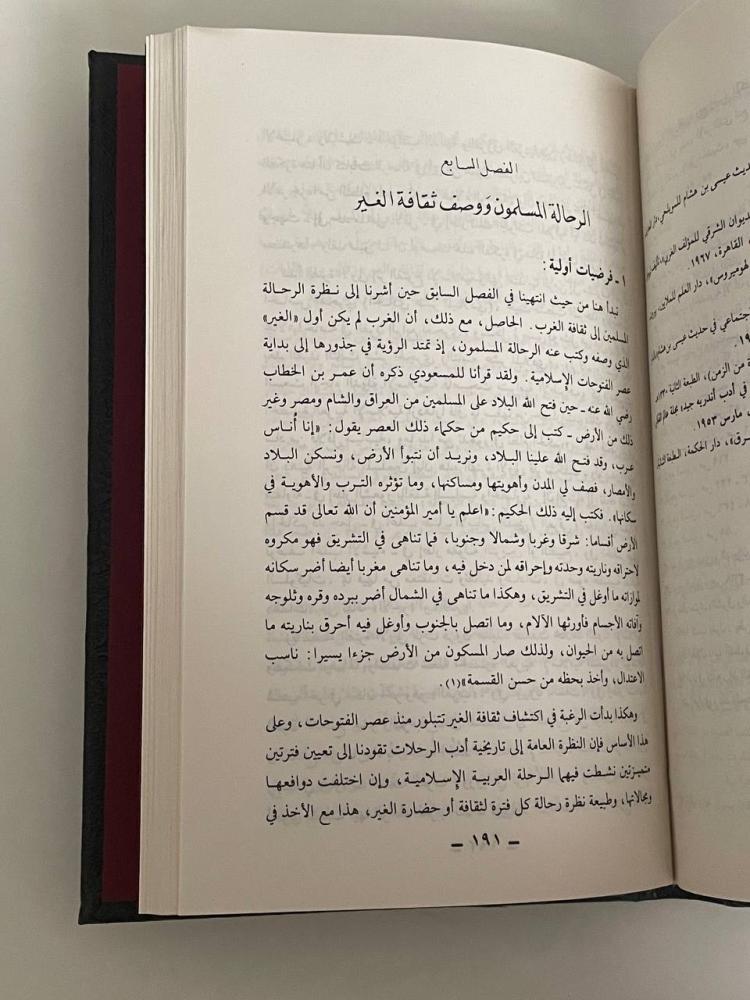 الفصل السابع
الرحالة المسلمون وَوصف ثقافة الغير
١ - فرضيات أولية :
نبدأ هنا من حيث انتهينا في الفصل السابق حين أشرنا إلى نظرة الرحالة
المسلمين إلى ثقافة الغرب. الحاصل، مع ذلك، أن الغرب لم يكن أول «الغير»
الذي وصفه وكتب عنه الرحالة المسلمون، إذ تمتد الرؤية في جذورها إلى بداية
عصر الفتوحات الإسلامية. ولقد قرأنا للمسعودي ذكره أن عمر بن الخطاب
رضي الله عنه - حين فتح الله البلاد على المسلمين من العراق والشام ومصر وغير
ذلك من الأرض - كتب إلى حكيم من حكماء ذلك العصر يقول: «إنا أُناس
عرب، وقد فتح الله علينا البلاد، ونريد أن نتبوأ الأرض، ونسكن البلاد
والأمصار، فصف لي المدن وأهويتها ومساكنها، وما تؤثره الترب والأهوية في
سكانها». فكتب إليه ذلك الحكيم: «اعلم يا أمير المؤمنين أن الله تعالى قد قسم
الأرض أقساما: شرقا وغربا وشمالا وجنوبا، فما تناهى في التشريق فهو مكروه
لاحراقه وناريته وحدته وإحراقه لمن دخل فيه، وما تناهى مغربا أيضا أضر سكانه
لموازاته ما أوغل في التشريق، وهكذا ما تناهى في الشمال أضر ببرده وقره وثلوجه
وآفاته الأجسام فأورثها الآلام، وما اتصل بالجنوب وأوغل فيه أحرق بناريته ما
اتصل به من الحيوان، ولذلك صار المسكون من الأرض جزءا يسيرا: ناسب
الاعتدال، وأخذ بحظه من حسن القسمة»(١).
وهكذا بدأت الرغبة في اكتشاف ثقافة الغير تتبلور منذ عصر الفتوحات، وعلى
هذا الأساس فإن النظرة العامة إلى تاريخية أدب الرحلات تقودنا إلى تعيين فترتين
متميزتين نشطت فيهما الرحلة العربية الإسلامية، وإن اختلفت دوافعها
ومجالاتها، وطبيعة نظرة رحالة كل فترة لثقافة أو حضارة الغير، هذا مع الأخذ في
- ١٩١ -
حديث عيسى بن هشام للمويلحي
الديوان الشرقي للمؤلف الغربي
القاهرة، ١٩٦٧.
لهوميروس»، دار العلم للملايين
جتماعي في حديث عيسى بن هشام
ة من الزمن)، الطبعة الثانية
في أدب أندريه جيد
، مارس ١٩٥٣
رق»، دار الحكمة،